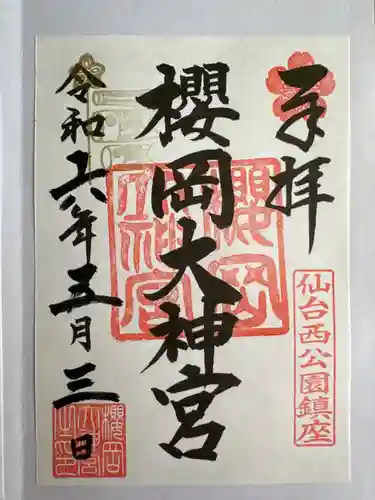 手拝
仙台西公園鎮座
櫻岡大神宮
櫻岡大神宮
令和六年五月三日